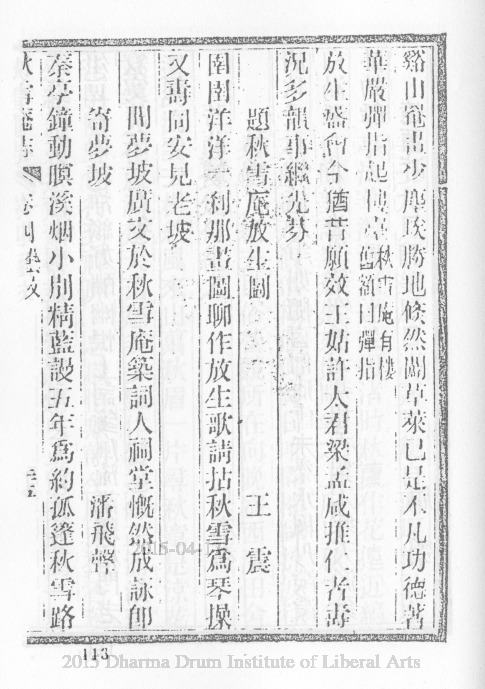 谿山菴出少塵埃勝地倐然闢草萊已是不凡功德著
華嚴彈指起樓臺秋雪庵有樓舊額曰彈指
放生盛會今猶昔願效王姑許太君梁孟咸推仁者壽
況多韻事繼尤芬
題秋雪庵放生圖 王震
圉圉洋洋一利那畫圖聊作放生歌請拈秋雪爲琴操
又壽同安見老坡
聞夢坡廣文於秋雪庵築詞人祠堂慨然成詠卽
寄夢坡 潘飛聲
秦亭鐘動膜溪烟小別精藍謾五年爲約孤篷秋雪路
秋雪庵志 卷四
113
2015-04-
2015 Dharma Drum Institute of Liberal Arts